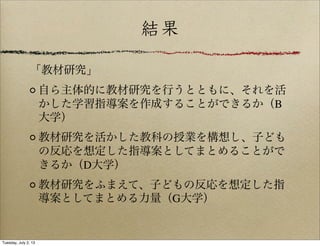 結果
「教材研究」
自ら主体的に教材研究を行うとともに、それを活
かした学習指導案を作成することができるか（B
大学）
教材研究を活かした教科の授業を構想し、子ども
の反応を想定した指導案としてまとめることがで
きるか（D大学）
教材研究をふまえて、子どもの反応を想定した指
導案としてまとめる力量（G大学）
Tuesday, July 2, 13